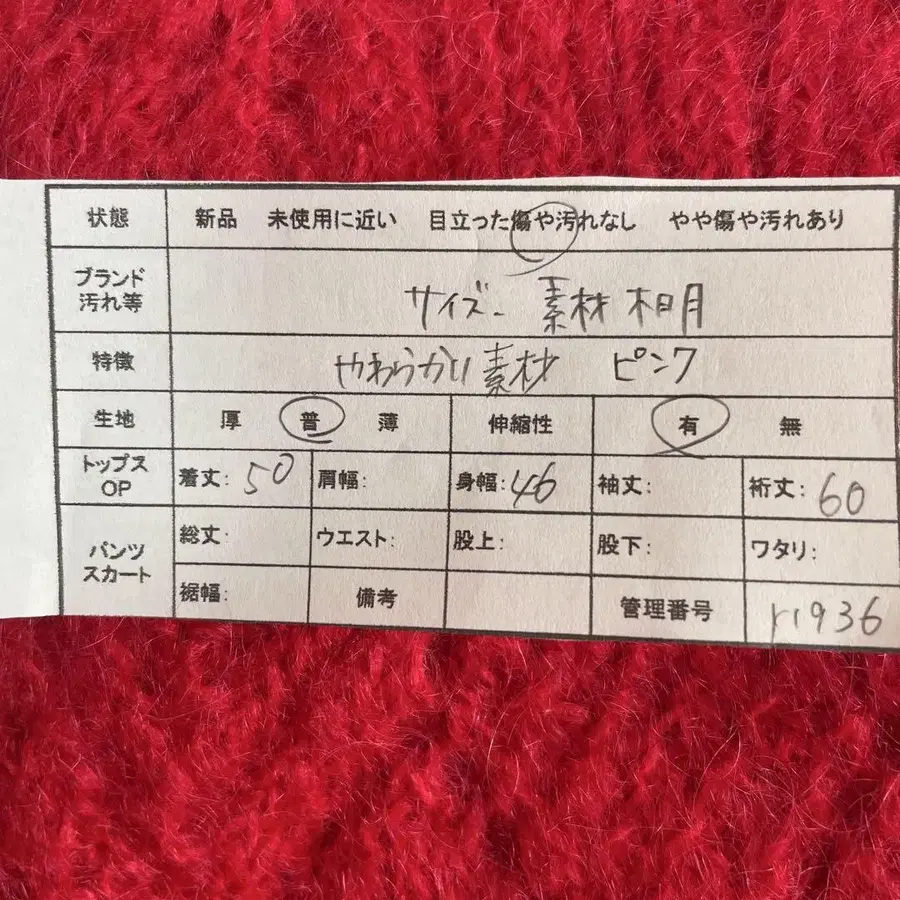 状態 新品 未使用に近い 目立った傷や汚れなし やや傷や汚れあり
ブランド
汚れ等
サイズ 素材
特徴 やわらかい素材 ピンク
生地 厚 普 薄 伸縮性 有 無
トップス
OP
着丈: 50 肩幅: 身幅: 46 袖丈: 裄丈: 60
パンツ
スカート
総丈: ウエスト: 股上: 股下: ワタリ:
裾幅: 備考 管理番号 r1936